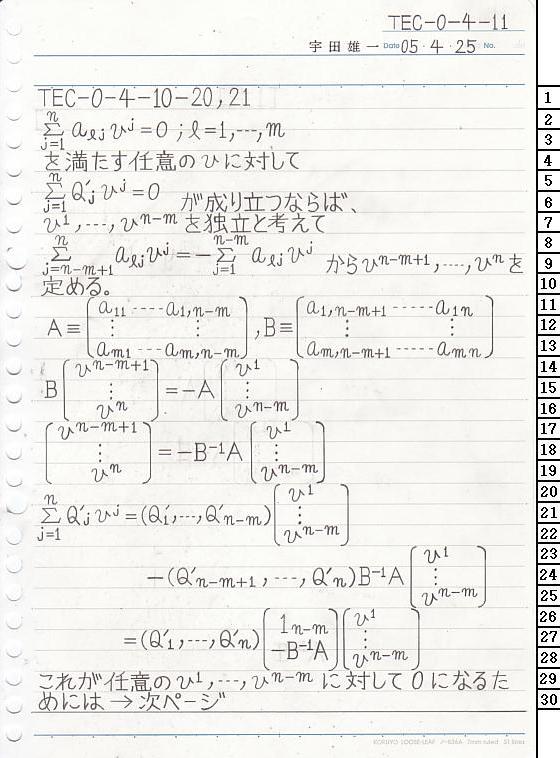 TEC-0-4-11
宇田雄一 Date 05・4・25 No.
TEC-0-4-10-20,21
n∑j=1 aℓj υ^j = 0 ; ℓ=1,…,m
を満たす任意の υ に対して
n∑j=1 Q′j υ^j = 0 が成り立つならば、
υ^1,…,υ^n-m を独立と考えて
n∑j=n-m+1 aℓj υ^j = - n-m∑j=1 aℓj υ^j から υ^n-m+1,…,υ^n を
定める。
A ≡ [a11 ---- a1,n-m ⋮ ⋮ am1 ---- am,n-m] , B ≡ [a1,n-m+1 ----- a1n ⋮ ⋮ am,n-m+1 ----- amn]
B [υ^n-m+1 ⋮ υ^n] = -A [υ^1 ⋮ υ^n-m]
[υ^n-m+1 ⋮ υ^n] = -B^-1A [υ^1 ⋮ υ^n-m]
n∑j=1 Q′j υ^j = (Q′1,…,Q′n-m) [υ^1 ⋮ υ^n-m]
-(Q′n-m+1,…,Q′n) B^-1A [υ^1 ⋮ υ^n-m]
= (Q′1,…,Q′n) [1n-m -B^-1A] [υ^1 ⋮ υ^n-m]
これが任意の υ^1,…,υ^n-m に対して 0 になるた
めには → 次ページ
1
2
3
4
5
6
7
8
9
10
11
12
13
14
15
16
17
18
19
20
21
22
23
24
25
26
27
28
29
30
KOKUYO LOOSE-LEAF ノ-836A 7mm ruled 31 lines